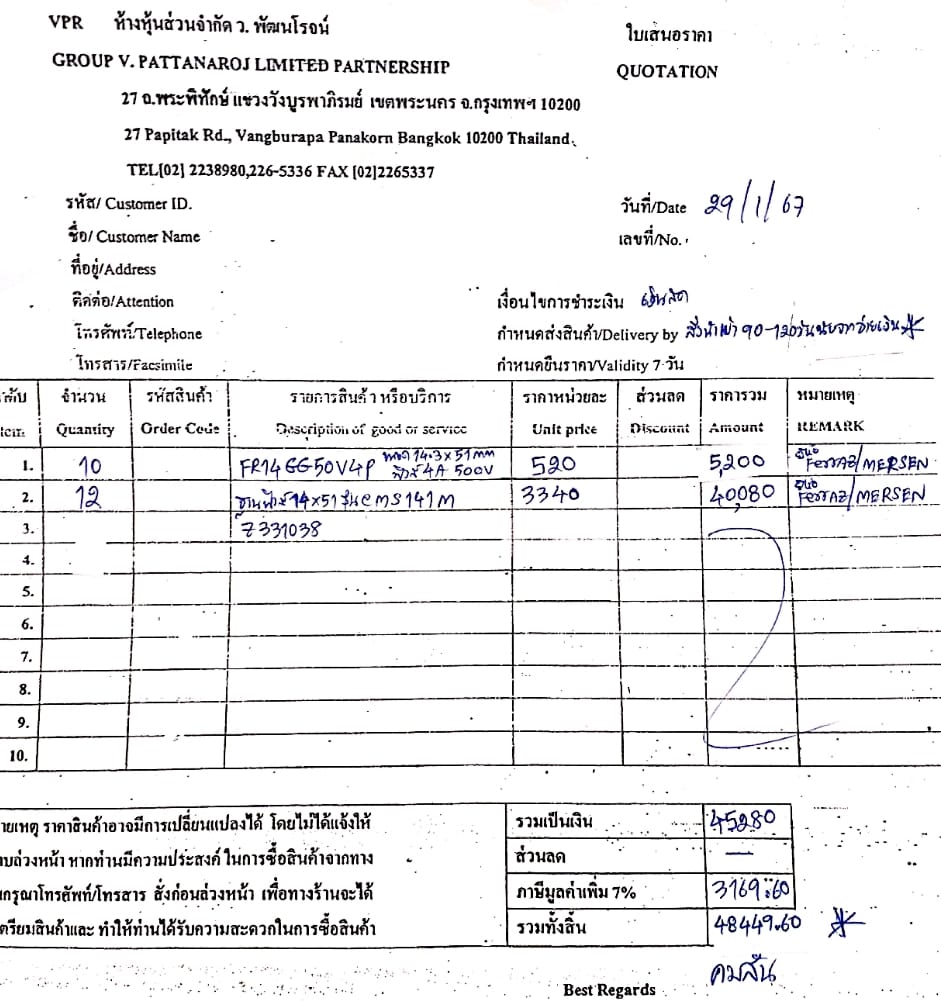 VPR ห้างหุ้นส่วนจำกัด ว. พัฒนโรจน์
ใบเสนอราคา
GROUP V. PATTANAROJ LIMITED PARTNERSHIP
QUOTATION
27 ถ.พระพิทักษ์ แขวงวังบูรพาภิรมย์ เขตพระนคร จ.กรุงเทพฯ 10200
27 Papitak Rd., Vangburapa Panakorn Bangkok 10200 Thailand.
TEL[02] 2238980,226-5336 FAX [02]2265337
รหัส/ Customer ID.
วันที่/Date 29/1/67
ชื่อ/ Customer Name
เลขที่/No.
ที่อยู่/Address
ติดต่อ/Attention
เงื่อนไขการชำระเงิน เงินสด
โทรศัพท์/Telephone
กำหนดส่งสินค้า/Delivery by สั่งนำเข้า 90-120วัน
โทรสาร/Facsimile
กำหนดยืนราคา/Validity 7 วัน
จำนวน รหัสสินค้า รายการสินค้า หรือบริการ ราคาหน่วยละ ส่วนลด ราคารวม หมายเหตุ
Quantity Order Code Description of good or service Unit price Discount Amount REMARK
1. 10 FR14GG50V4P ขนาด 14.3x51mm ฟิวส์ 4A 500V 520 5,200 ยี่ห้อ Ferraz/MERSEN
2. 12 ฐานฟิวส์ 14x51 รุ่น CMS141M 3340 40,080 ยี่ห้อ Ferraz/MERSEN
3. Z331038
4.
5.
6.
7.
8.
9.
10.
ายเหตุ ราคาสินค้าอาจมีการเปลี่ยนแปลงได้ โดยไม่ได้แจ้งให้
รวมเป็นเงิน 45280
บล่วงหน้า หากท่านมีความประสงค์ ในการซื้อสินค้าจากทาง
ส่วนลด —
นกรุณาโทรศัพท์/โทรสาร สั่งก่อนล่วงหน้า เพื่อทางร้านจะได้
ภาษีมูลค่าเพิ่ม 7% 3169.60
ตรียมสินค้าและ ทำให้ท่านได้รับความสะดวกในการซื้อสินค้า
รวมทั้งสิ้น 48449.60
คมสัน
Best Regards